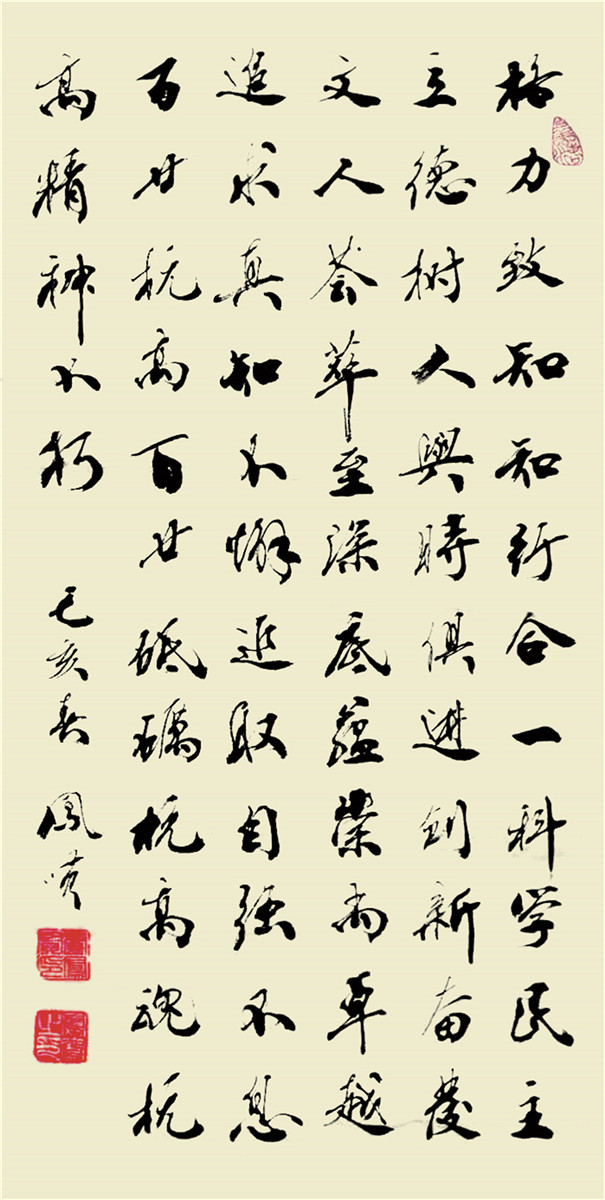 格力致知知行合一科学民主
立德树人與時俱進创新奋發
文人荟萃至深底蕴崇尚卓越
追求真知不懈進取自强不息
百廿杭高百廿砥礪杭高魂杭
高精神不朽 己亥春 鳳